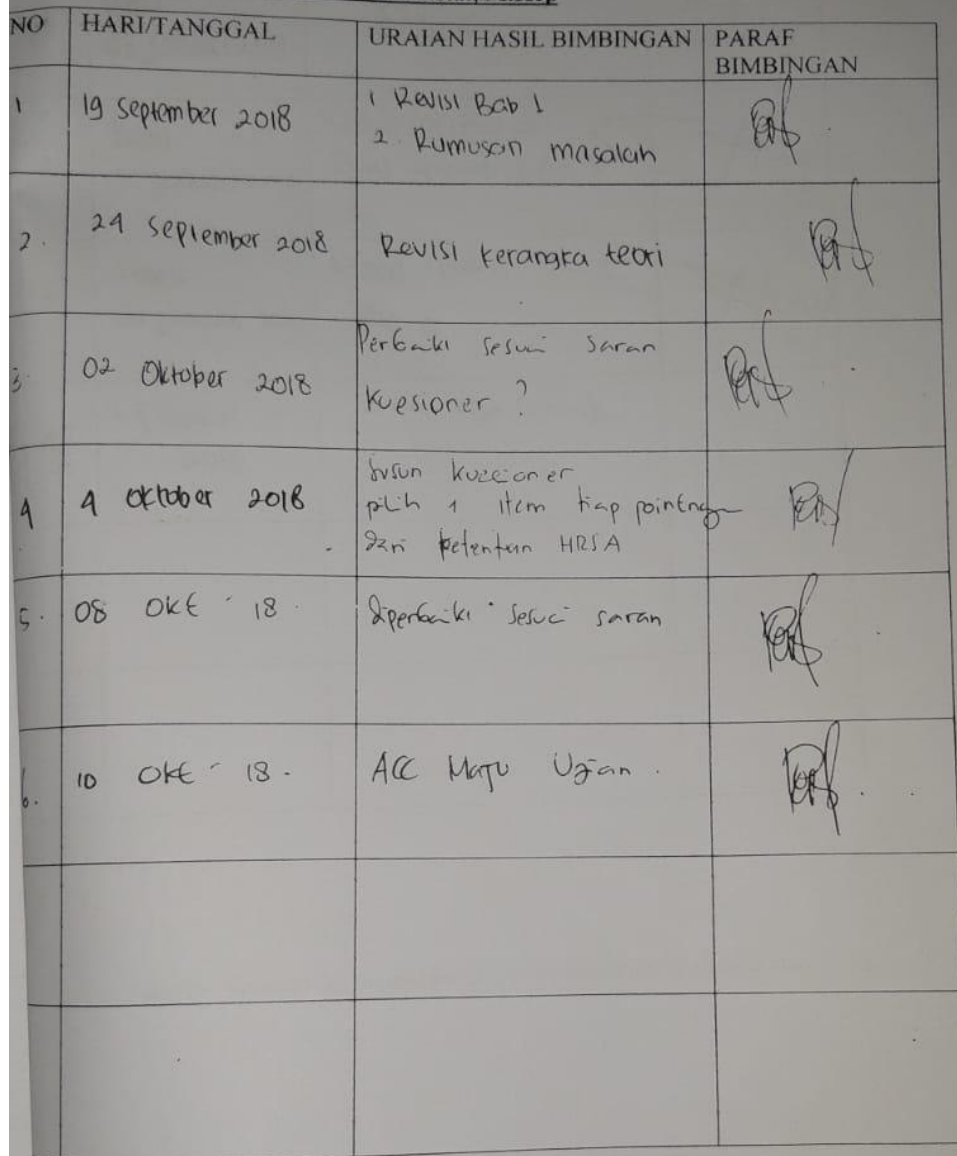 NO HARI/TANGGAL URAIAN HASIL BIMBINGAN PARAF
BIMBINGAN
1 19 September 2018 1 Revisi Bab 1
2. Rumusan masalah
2. 24 September 2018 Revisi kerangka teori
3. 02 Oktober 2018 Perbaiki sesuai saran
kuesioner ?
4 4 Oktober 2018 susun kuesioner
pilih 1 item tiap pointnya
dari ketentuan HRSA
5. 08 Okt - 18. diperbaiki sesuai saran
6. 10 Okt - 18. ACC Maju Ujian.